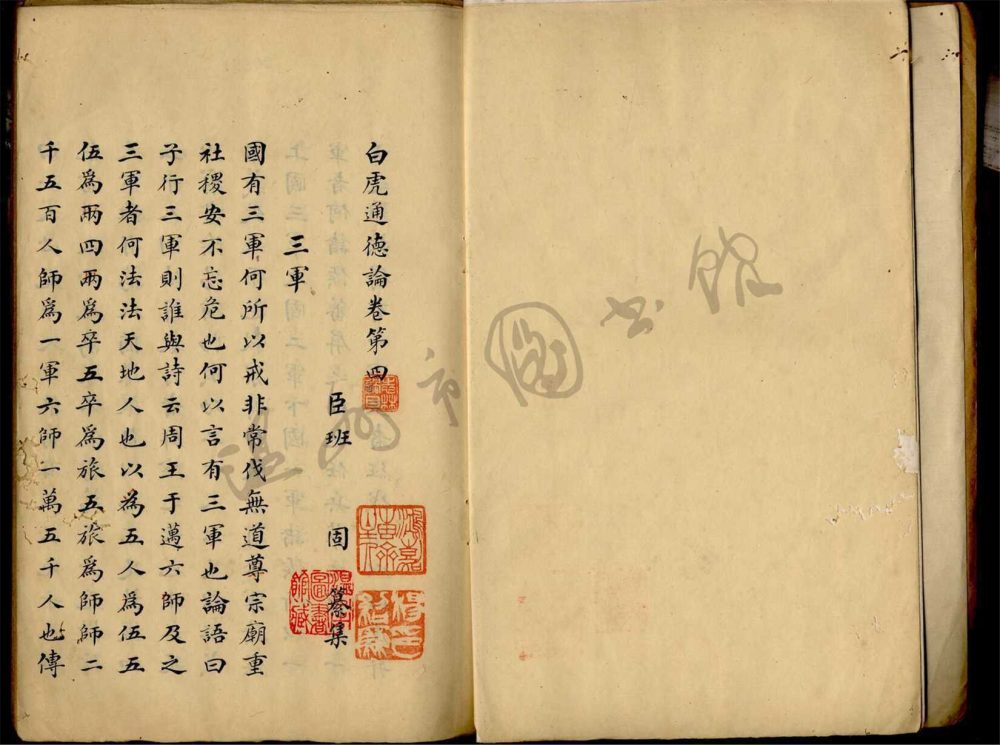 白虎通德論卷第四
臣班固纂集
三軍
國有三軍何所以戒非常伐無道尊宗廟重
社稷安不忘危也何以言有三軍也論語曰
子行三軍則誰與詩云周王于邁六師及之
三軍者何法法天地人也以為五人為伍五
伍爲兩四兩爲卒五卒爲旅五旅爲師師二
千五百人師爲一軍六師一萬五千人也傳
温州市图书馆